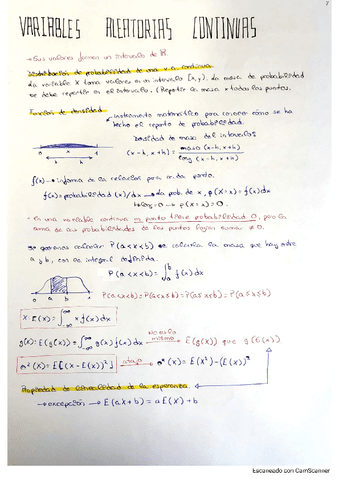 VARIABLES ALEATORIAS CONTINUAS
→ Sus valores forman un intervalo de ℝ.
Distribución de probabilidad de una v.a continua
La variable X toma valores en un intervalo [x,y]. La masa de probabilidad
se debe repartir en el intervalo. (Repartir la masa a todos los puntos.
Función de densidad
Instrumento matemático para conocer cómo se ha
hecho el reparto de probabilidad.
Densidad de masa del intervalo:
(x-h, x+h) = masa (x-h, x+h) / long (x-h, x+h)
f(x) → informa de la
para cada punto.
f(x) = probabilidad (x)/dx → la prob. de x, P(X=x) = f(x)dx
→ P(X=x) = 0.
· En una variable continua un punto tiene probabilidad 0, pero la
suma de las probabilidades de los puntos
≠ 0.
Si queremos calcular P(a<x<b) se calcularía la masa que hay entre
a y b, con la integral definida.
P(a<x<b) = ∫ₐᵇ f(x)dx
a b
P(a<x<b) = P(a≤x<b) = P(a<x≤b) = P(a≤x≤b)
X: E(X) = ∫₋∞^∞ x f(x)dx
g(X): E(g(X)) = ∫₋∞^∞ g(x) f(x)dx No es lo mismo E(g(X)) que g(E(X)).
σ²(X) = E[(X-E(X))²] atajo → σ²(X) = E(X²) - (E(X))²
Propiedad de linealidad de la esperanza
→ excepción → E(aX+b) = aE(X)+b
Escaneado con CamScanner